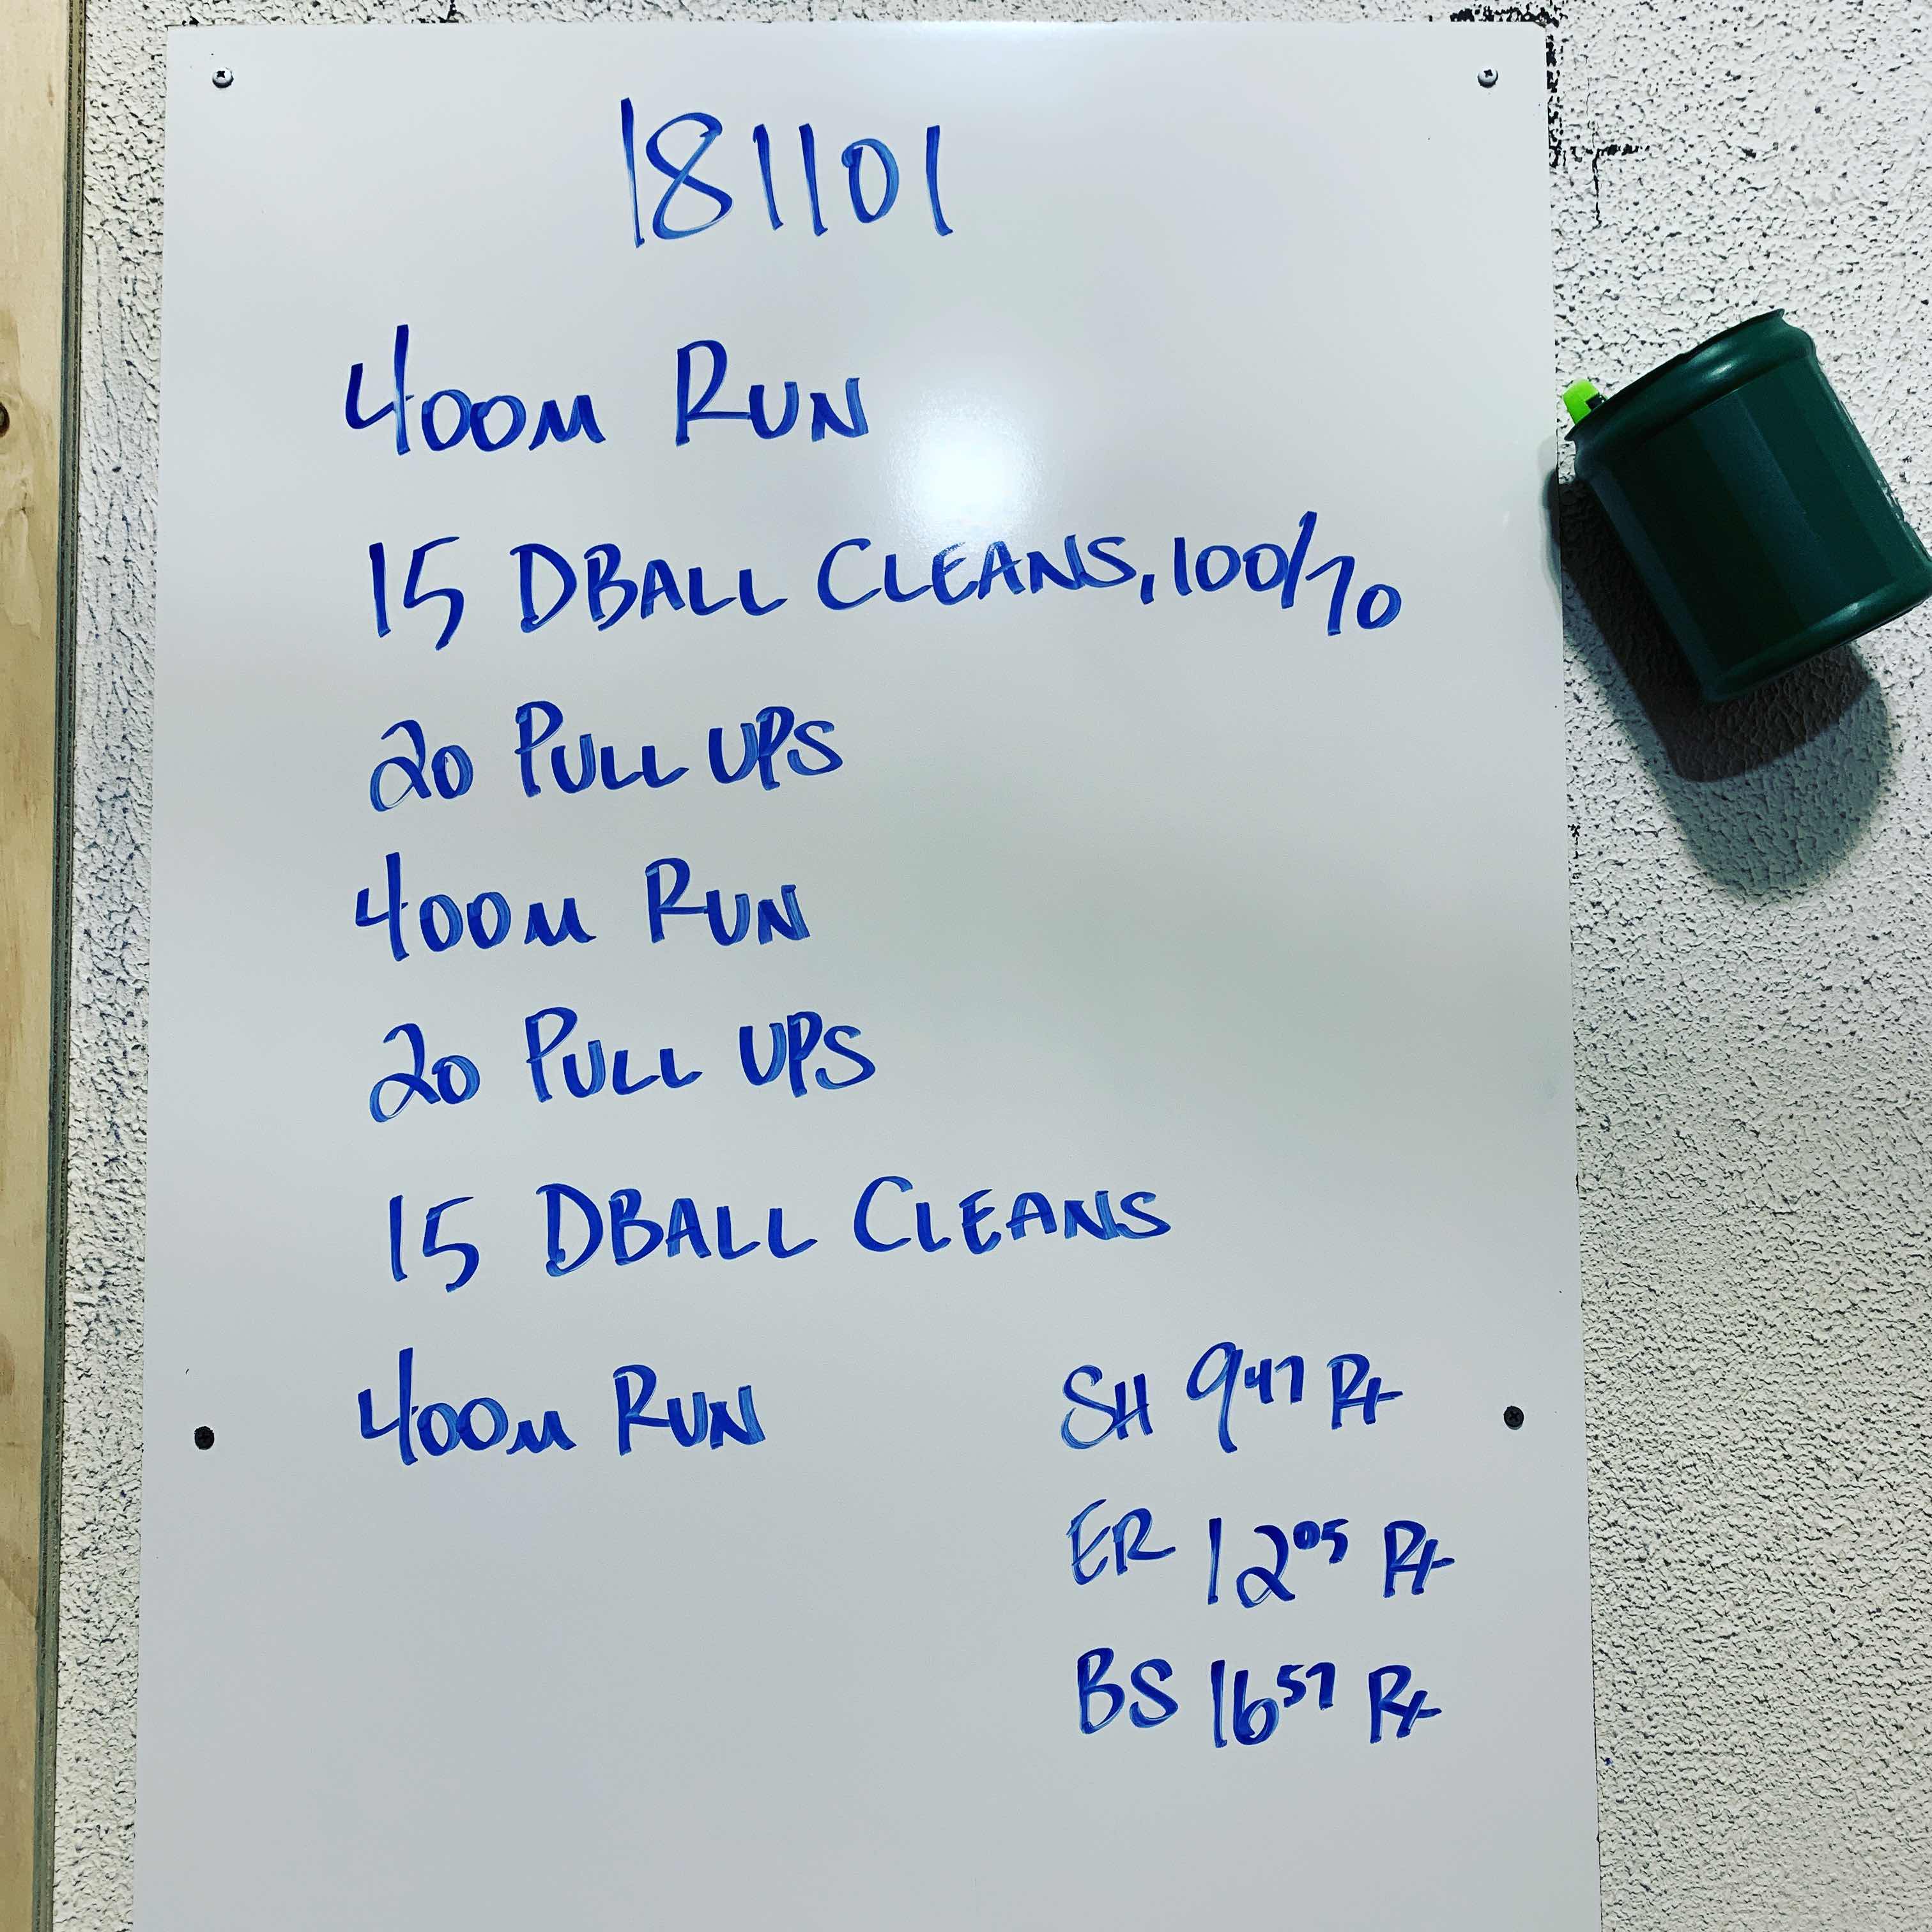 181101
400M RUN
15 DBALL CLEANS, 100/70
20 PULL UPS
400M RUN
20 PULL UPS
15 DBALL CLEANS
400M RUN
SH 9 47 Rx
ER 12 05 Rx
BS 16 57 Rx